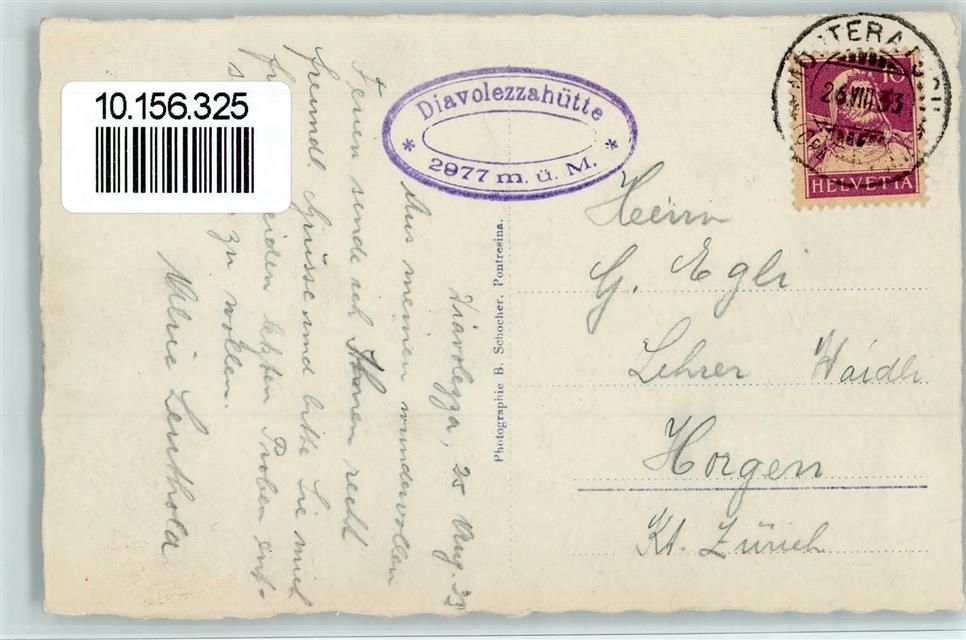 10.156.325
Diavolezzahütte
* 2977 m. ü. M. *
10
HELVETIA
26.VIII.33
Diavolezza, 25 Aug. 33
Aus meinen wundervollen
Ferien sende ich Ihnen recht
freundl. Grüsse und bitte Sie mich
beiden letzten Proben ent-
zu wollen.
Leuthold
Photographie B. Schocher, Pontresina.
Herrn
G. Egli
Lehrer Waidli
Horgen
Kt. Zürich